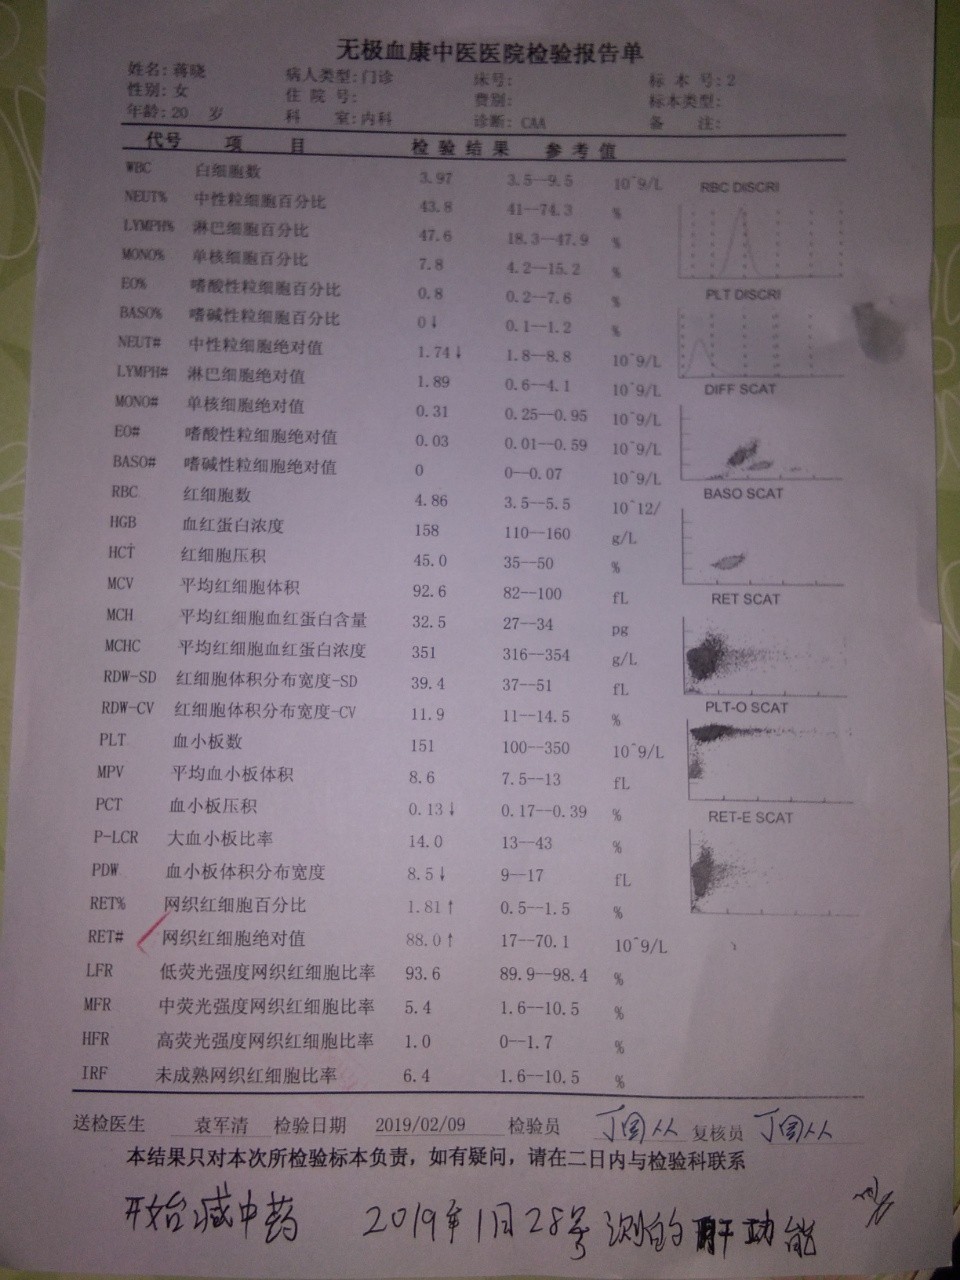 无极血康中医医院检验报告单
姓名: 蒋晓 病人类型: 门诊 床号: 标 本 号: 2
性别: 女 住 院 号: 费别: 标本类型:
年龄: 20 岁 科 室: 内科 诊断: CAA 备 注:
代号 项 目 检 验 结 果 参 考 值
WBC 白细胞数 3.97 3.5--9.5 10^9/L
NEUT% 中性粒细胞百分比 43.8 41--74.3 %
LYMPH% 淋巴细胞百分比 47.6 18.3--47.9 %
MONO% 单核细胞百分比 7.8 4.2--15.2 %
EO% 嗜酸性粒细胞百分比 0.8 0.2--7.6 %
BASO% 嗜碱性粒细胞百分比 0↓ 0.1--1.2 %
NEUT# 中性粒细胞绝对值 1.74↓ 1.8--8.8 10^9/L
LYMPH# 淋巴细胞绝对值 1.89 0.6--4.1 10^9/L
MONO# 单核细胞绝对值 0.31 0.25--0.95 10^9/L
EO# 嗜酸性粒细胞绝对值 0.03 0.01--0.59 10^9/L
BASO# 嗜碱性粒细胞绝对值 0 0--0.07 10^9/L
RBC 红细胞数 4.86 3.5--5.5 10^12/
HGB 血红蛋白浓度 158 110--160 g/L
HCT 红细胞压积 45.0 35--50 %
MCV 平均红细胞体积 92.6 82--100 fL
MCH 平均红细胞血红蛋白含量 32.5 27--34 pg
MCHC 平均红细胞血红蛋白浓度 351 316--354 g/L
RDW-SD 红细胞体积分布宽度-SD 39.4 37--51 fL
RDW-CV 红细胞体积分布宽度-CV 11.9 11--14.5 %
PLT 血小板数 151 100--350 10^9/L
MPV 平均血小板体积 8.6 7.5--13 fL
PCT 血小板压积 0.13↓ 0.17--0.39 %
P-LCR 大血小板比率 14.0 13--43 %
PDW 血小板体积分布宽度 8.5↓ 9--17 fL
RET% 网织红细胞百分比 1.81↑ 0.5--1.5 %
RET# 网织红细胞绝对值 88.0↑ 17--70.1 10^9/L
LFR 低荧光强度网织红细胞比率 93.6 89.9--98.4 %
MFR 中荧光强度网织红细胞比率 5.4 1.6--10.5 %
HFR 高荧光强度网织红细胞比率 1.0 0--1.7 %
IRF 未成熟网织红细胞比率 6.4 1.6--10.5 %
RBC DISCRI
PLT DISCRI
DIFF SCAT
BASO SCAT
RET SCAT
PLT-O SCAT
RET-E SCAT
送检医生 袁军清 检验日期 2019/02/09 检验员 丁国从 复核员 丁国从
本结果只对本次所检验标本负责，如有疑问，请在二日内与检验科联系
开始减中药 2019年1月28号测的肝功能